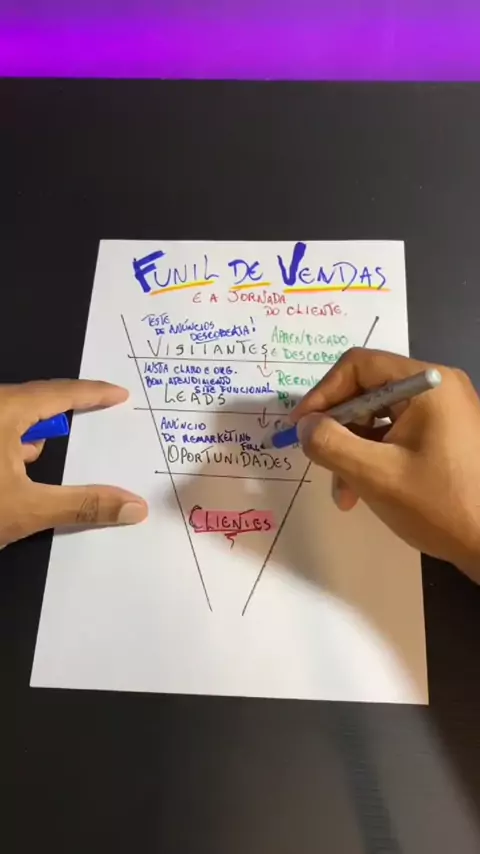 FUNIL DE VENDAS
E A JORNADA
DO CLIENTE.
TESTE
DE ANÚNCIOS DESCOBERTA!
VISITANTES
APRENDIZADO
E DESCOBER
INSTA CLARO E ORG.
BOM ATENDIMENTO
SITE FUNCIONAL
LEADS
ANÚNCIO
DE REMARKETING
OPORTUNIDADES
CLIENTES